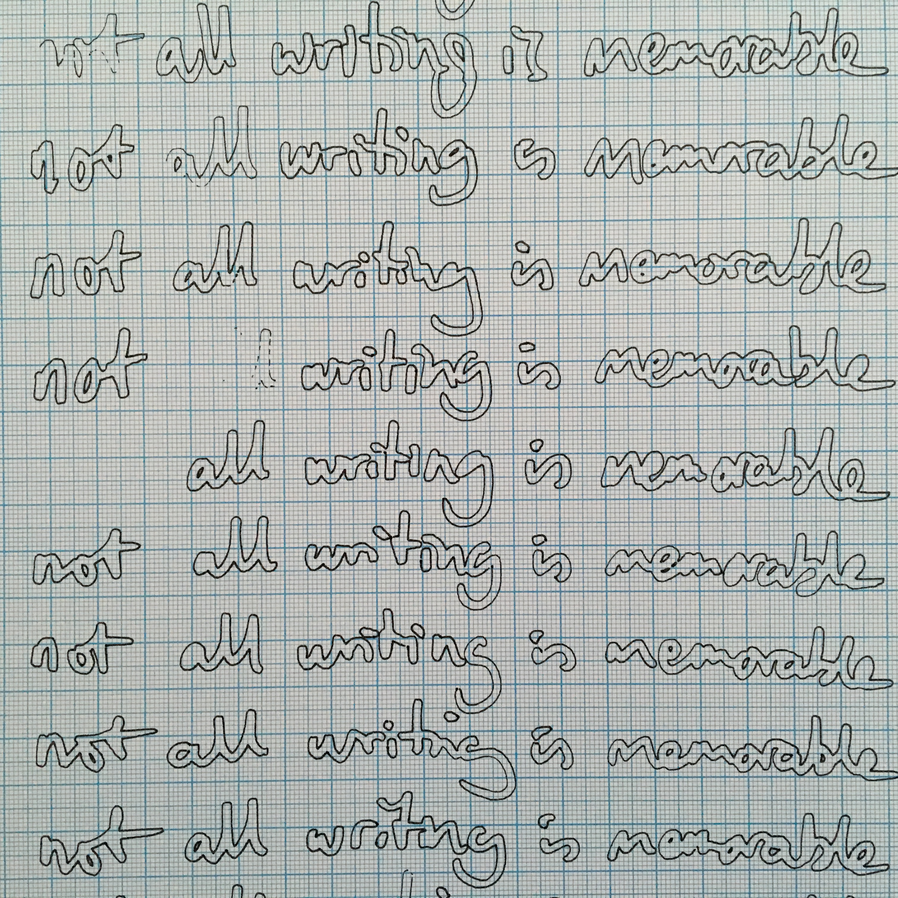 not all writing is memorable
not all writing is memorable
not all writing is memorable
not writing is memorable
all writing is memorable
not all writing is memorable
not all writing is memorable
not all writing is memorable
not all writing is memorable